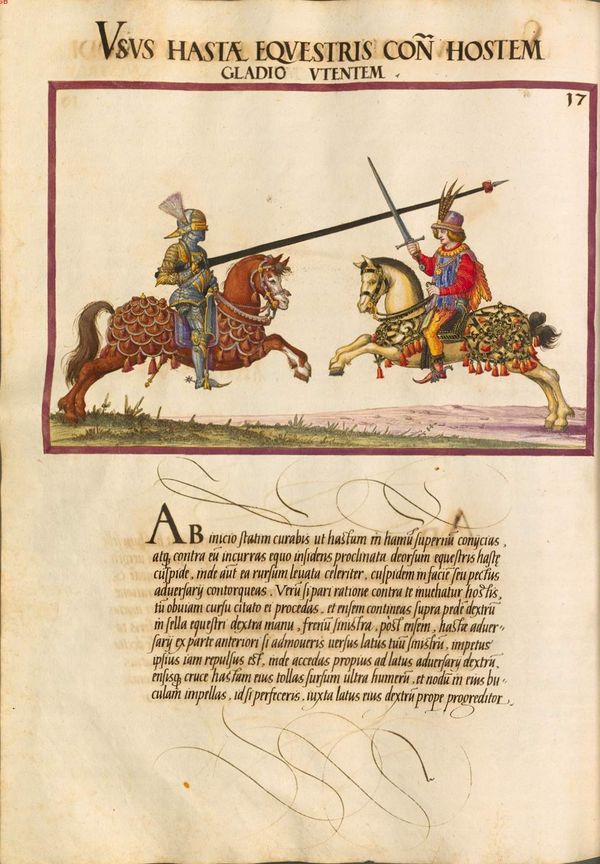 VSVS HASTÆ EQVESTRIS COÑ HOSTEM
GLADIO VTENTEM
17
AB inicio statim curabis ut hastam in hamũ supernũ conijcias,
atq, contra eũ incurras equo insidens proclinata deorsum equestris hastę
cuspide, inde aũt ea rursum leuata celeriter, cuspidem in facie seu pectus
aduersarij contorqueas. Verũ si pari ratione contra te inuehatur hostis,
tũ obuiam cursu citato ei procedas, et ensem contineas supra pedẽ dextrũ
in sella equestri dextra manu, frenũ sinistra, post ensem, hastæ aduer-
sarij ex parte anteriori si admoueris uersus latus tuũ sinistrũ, impetus
ipsius iam repulsus est, inde accedas propius ad latus aduersarij dextrũ,
ensisq, cruce hastam eius tollas sursum ultra humerũ, et nodũ in eius bu-
culam impellas, id si perfeceris, iuxta latus eius dextrũ prope progreditor.